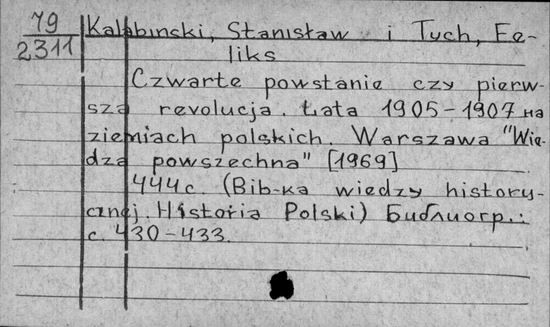 79
2311
Kalabinski, Stanisław i Tych, Fe-
liks
Czwarte powstanie czy pierw-
sza rewolucja. Łata 1905-1907 на
ziemiach polskich. Warszawa "Wie-
dza powszechna" [1969]
444 с. (Bib-ka wiedzy history-
cznej. Historia Polski) Библиогр.:
с. 430-433.